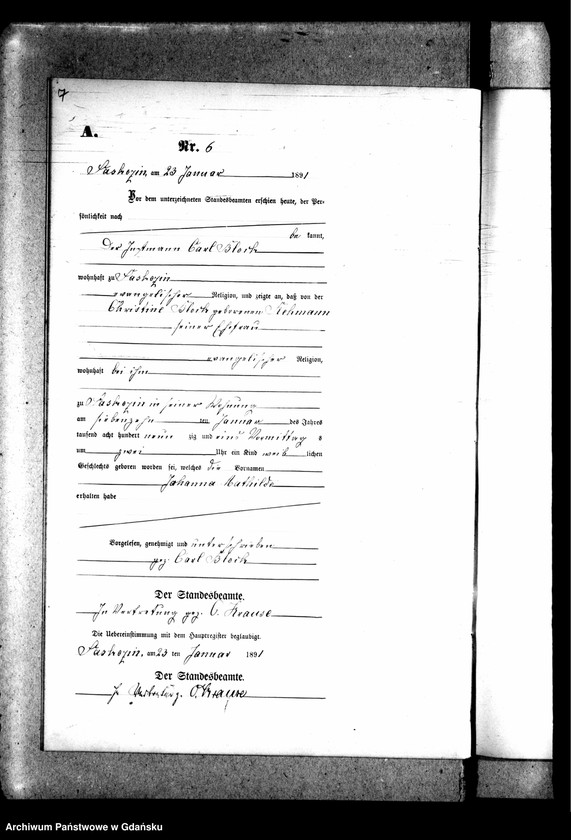 7
A.
Nr. 6
am 23 Januar 1891
Vor dem unterzeichneten Standesbeamten erschien heute, der Per-
sönlichkeit nach
be kannt,
Der Instmann Carl Block
wohnhaft zu
evangelischer Religion, und zeigte an, daß von der
Christine Block geborenen
seiner Ehefrau
evangelischer Religion,
wohnhaft bei ihm
zu in seiner Wohnung
am siebenzehn ten Januar des Jahres
tausend acht hundert neun zig und eins Vormittag s
um zwei Uhr ein Kind weib lichen
Geschlechts geboren worden sei, welches die Vornamen
Johanna Mathilde
erhalten habe
Vorgelesen, genehmigt und unterschrieben
gez. Carl Block
Der Standesbeamte.
In Vertretung gez. O. Krause
Die Uebereinstimmung mit dem Hauptregister beglaubigt.
am 23 ten Januar 1891
Der Standesbeamte.
O. Krause
Archiwum Państwowe w Gdańsku